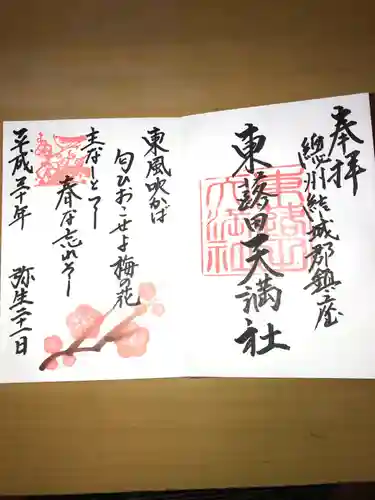 奉拝
總州結城郡鎮座
東蕗田天満社
東蕗田天満社
東風吹かば
匂ひおこせよ梅の花
主なしとて
春な忘れそ
平成三十年
弥生二十一日